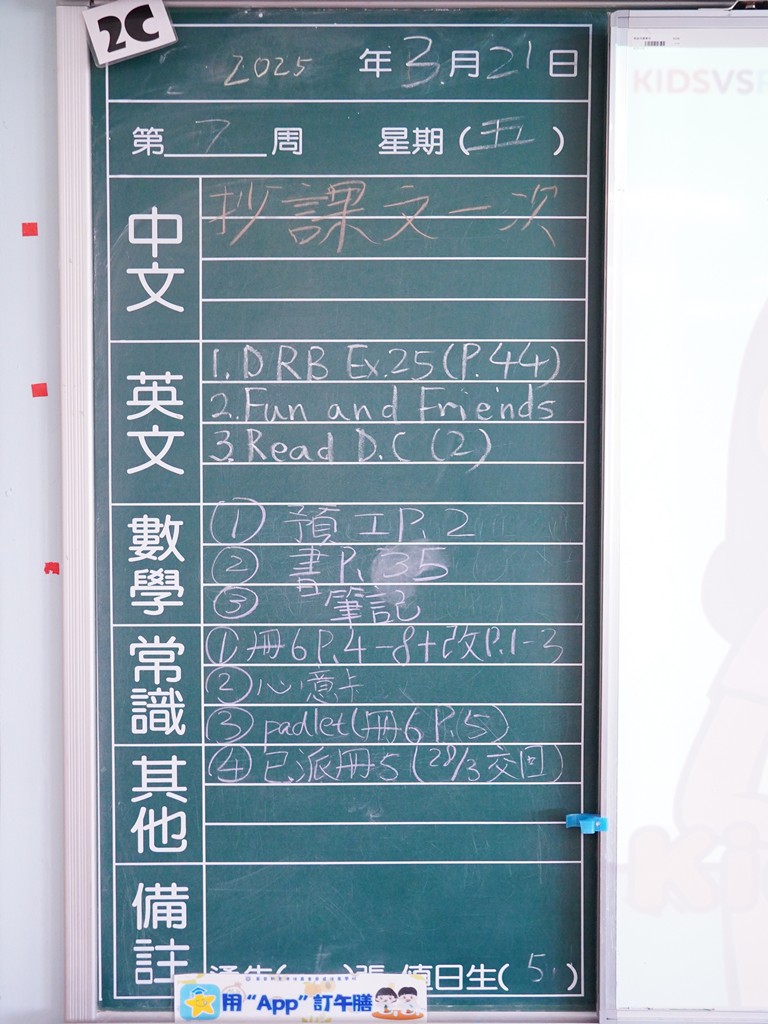 2C
2025 年 3 月 21 日
第 7 周 星期 ( 五 )
中文
抄課文一次
英文
1. DRB Ex.25 (P.44)
2. Fun and Friends
3. Read D.C (2)
數學
① 預工P.2
② 書P.35
③ 筆記
常識
① 冊6 P.4-8+改P.1-3
② 心意卡
③ padlet(冊6 P.15)
其他
④ 已派冊5 (28/3交回)
備註
通告( )張 值日生( 5 )
用“App”訂午膳
KIDSVS
Ki